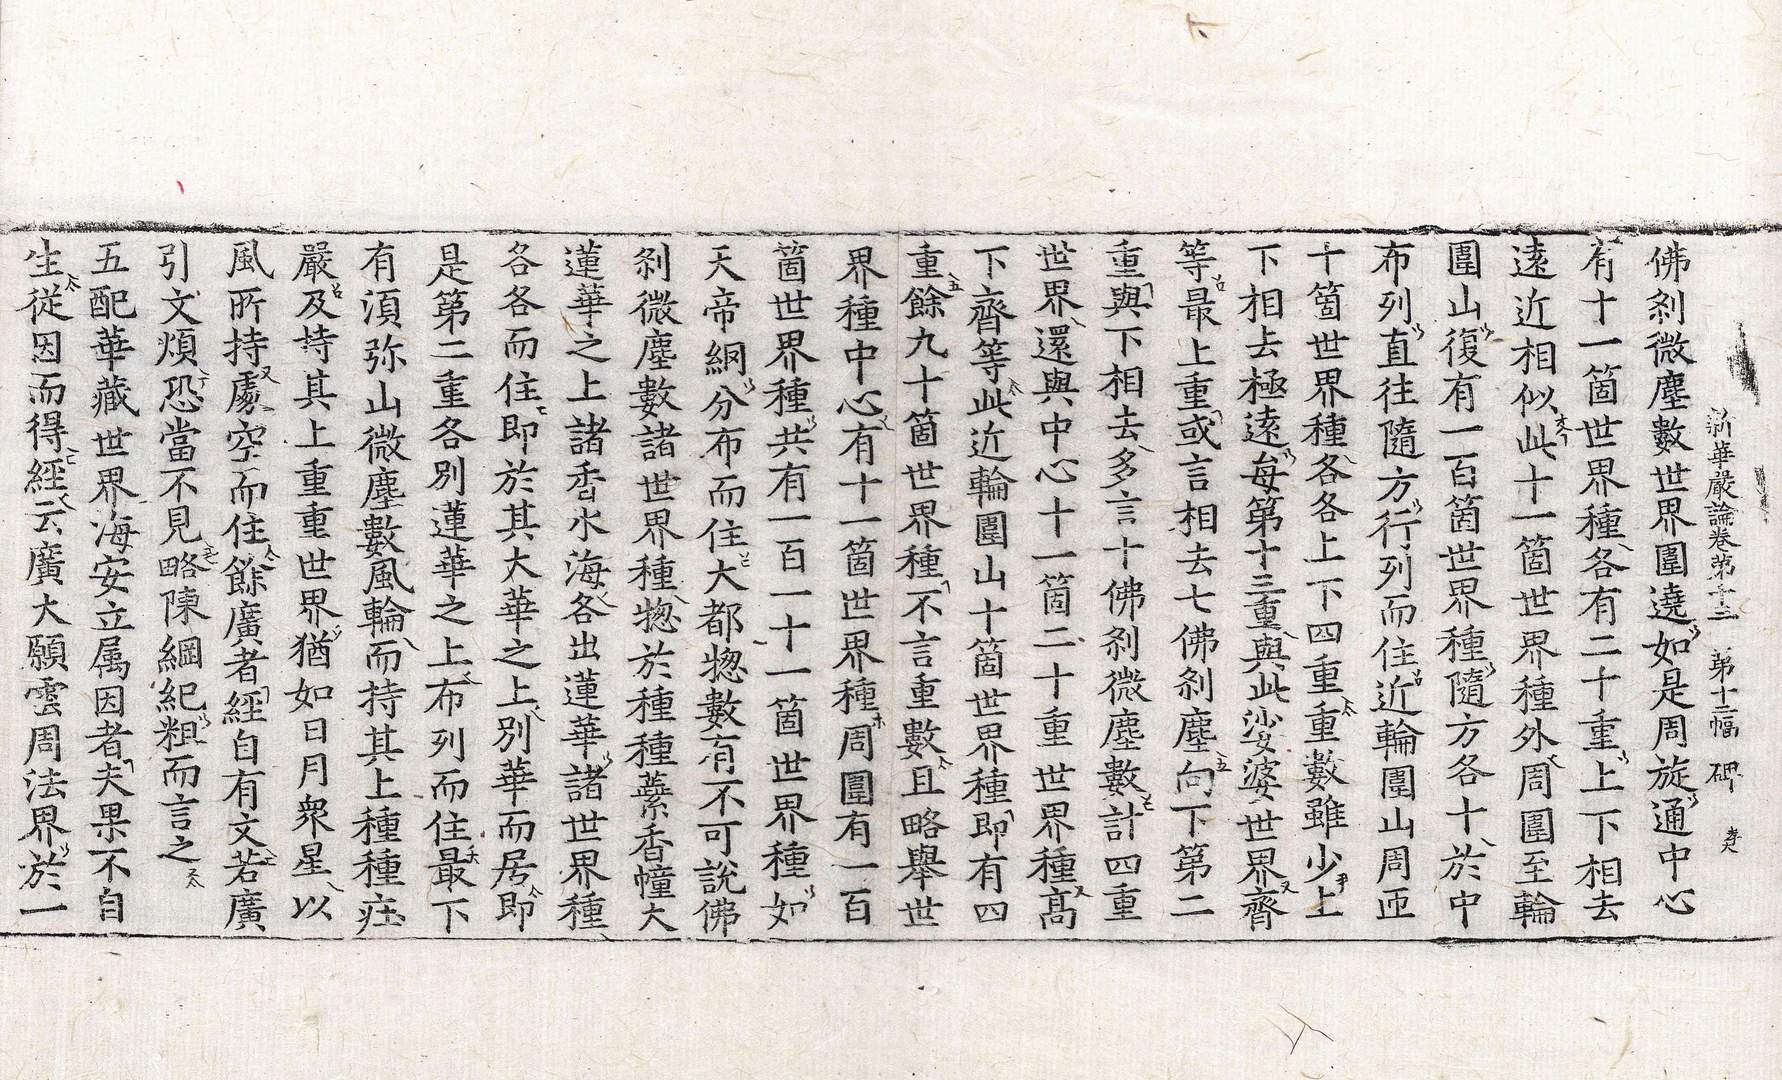 新華嚴論卷第十三 第十二幅 碑
佛刹微塵數世界圍遶如是周旋通中心
有十一箇世界種各有二十重上下相去
遠近相似此十一箇世界種外周圍至輪
圍山復有一百箇世界種隨方各十於中
布列直往隨方行列而住近輪圍山周匝
十箇世界種各各上下四重重數雖少上
下相去極遠每第十三重與此娑婆世界齊
等最上重或言相去七佛刹塵向下第二
重與下相去多言十佛刹微塵數計四重
世界還與中心十一箇二十重世界種高
下齊等此近輪圍山十箇世界種即有四
重餘九十箇世界種不言重數且略舉世
界種中心有十一箇世界種周圍有一百
箇世界種共有一百一十一箇世界種如
天帝網分布而住大都惣數有不可說佛
刹微塵數諸世界種惣於種種蘂香幢大
蓮華之上諸香水海各出蓮華諸世界種
各各而住即於其大華之上別華而居即
是第二重各別蓮華之上布列而住最下
有須弥山微塵數風輪而持其上種種莊
嚴及持其上重重世界猶如日月衆星以
風所持處空而住餘廣者經自有文若廣
引文煩恐當不見略陳綱紀粗而言之
五配華藏世界海安立属因者夫果不自
生從因而得經云廣大願雲周法界於一